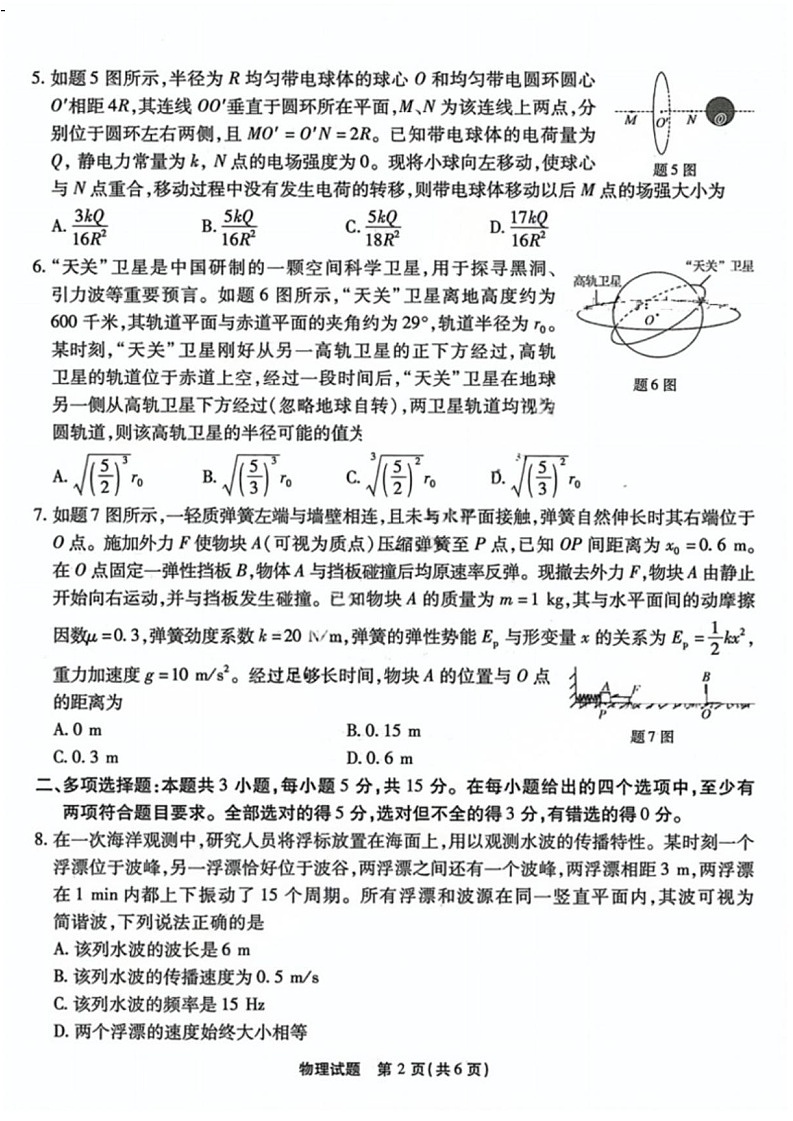 5. 如题5图所示,半径为 R 均匀带电球体的球心 O 和均匀带电圆环圆心
O′相距4R,其连线 OO′垂直于圆环所在平面,M、N 为该连线上两点,分
别位于圆环左右两侧,且 MO′=O′N=2R。已知带电球体的电荷量为
Q,静电力常量为 k, N 点的电场强度为0。现将小球向左移动,使球心
与 N 点重合,移动过程中没有发生电荷的转移,则带电球体移动以后 M 点的场强大小为
M O′ N O
题5图
A. 3kQ/16R² B. 5kQ/16R² C. 5kQ/18R² D. 17kQ/16R²
6. “天关”卫星是中国研制的一颗空间科学卫星,用于探寻黑洞、
引力波等重要预言。如题6图所示,“天关”卫星离地高度约为
600千米,其轨道平面与赤道平面的夹角约为29°,轨道半径为 r₀。
某时刻,“天关”卫星刚好从另一高轨卫星的正下方经过,高轨
卫星的轨道位于赤道上空,经过一段时间后,“天关”卫星在地球
另一侧从高轨卫星下方经过(忽略地球自转),两卫星轨道均视为
圆轨道,则该高轨卫星的半径可能的值为
“天关”卫星
高轨卫星
O
题6图
A. √(5/2)³ r₀ B. √(5/3)³ r₀ C. ³√(5/2)² r₀ D. ³√(5/3)² r₀
7. 如题7图所示,一轻质弹簧左端与墙壁相连,且未与水平面接触,弹簧自然伸长时其右端位于
O 点。施加外力 F 使物块 A(可视为质点)压缩弹簧至 P 点,已知 OP 间距离为 x₀=0.6 m。
在 O 点固定一弹性挡板 B,物体 A 与挡板碰撞后均原速率反弹。现撤去外力 F,物块 A 由静止
开始向右运动,并与挡板发生碰撞。已知物块 A 的质量为 m=1 kg,其与水平面间的动摩擦
因数μ=0.3,弹簧劲度系数 k=20 N/m,弹簧的弹性势能 Eₚ 与形变量 x 的关系为 Eₚ=1/2kx²,
重力加速度 g=10 m/s²。经过足够长时间,物块 A 的位置与 O 点
的距离为
A F B
P O
题7图
A. 0 m B. 0.15 m
C. 0.3 m D. 0.6 m
二、多项选择题:本题共3小题,每小题5分,共15分。在每小题给出的四个选项中,至少有
两项符合题目要求。全部选对的得5分,选对但不全的得3分,有错选的得0分。
8. 在一次海洋观测中,研究人员将浮标放置在海面上,用以观测水波的传播特性。某时刻一个
浮漂位于波峰,另一浮漂恰好位于波谷,两浮漂之间还有一个波峰,两浮漂相距3 m,两浮漂
在1 min内都上下振动了15个周期。所有浮漂和波源在同一竖直平面内,其波可视为
简谐波,下列说法正确的是
A. 该列水波的波长是6 m
B. 该列水波的传播速度为0.5 m/s
C. 该列水波的频率是15 Hz
D. 两个浮漂的速度始终大小相等
物理试题 第2页(共6页)